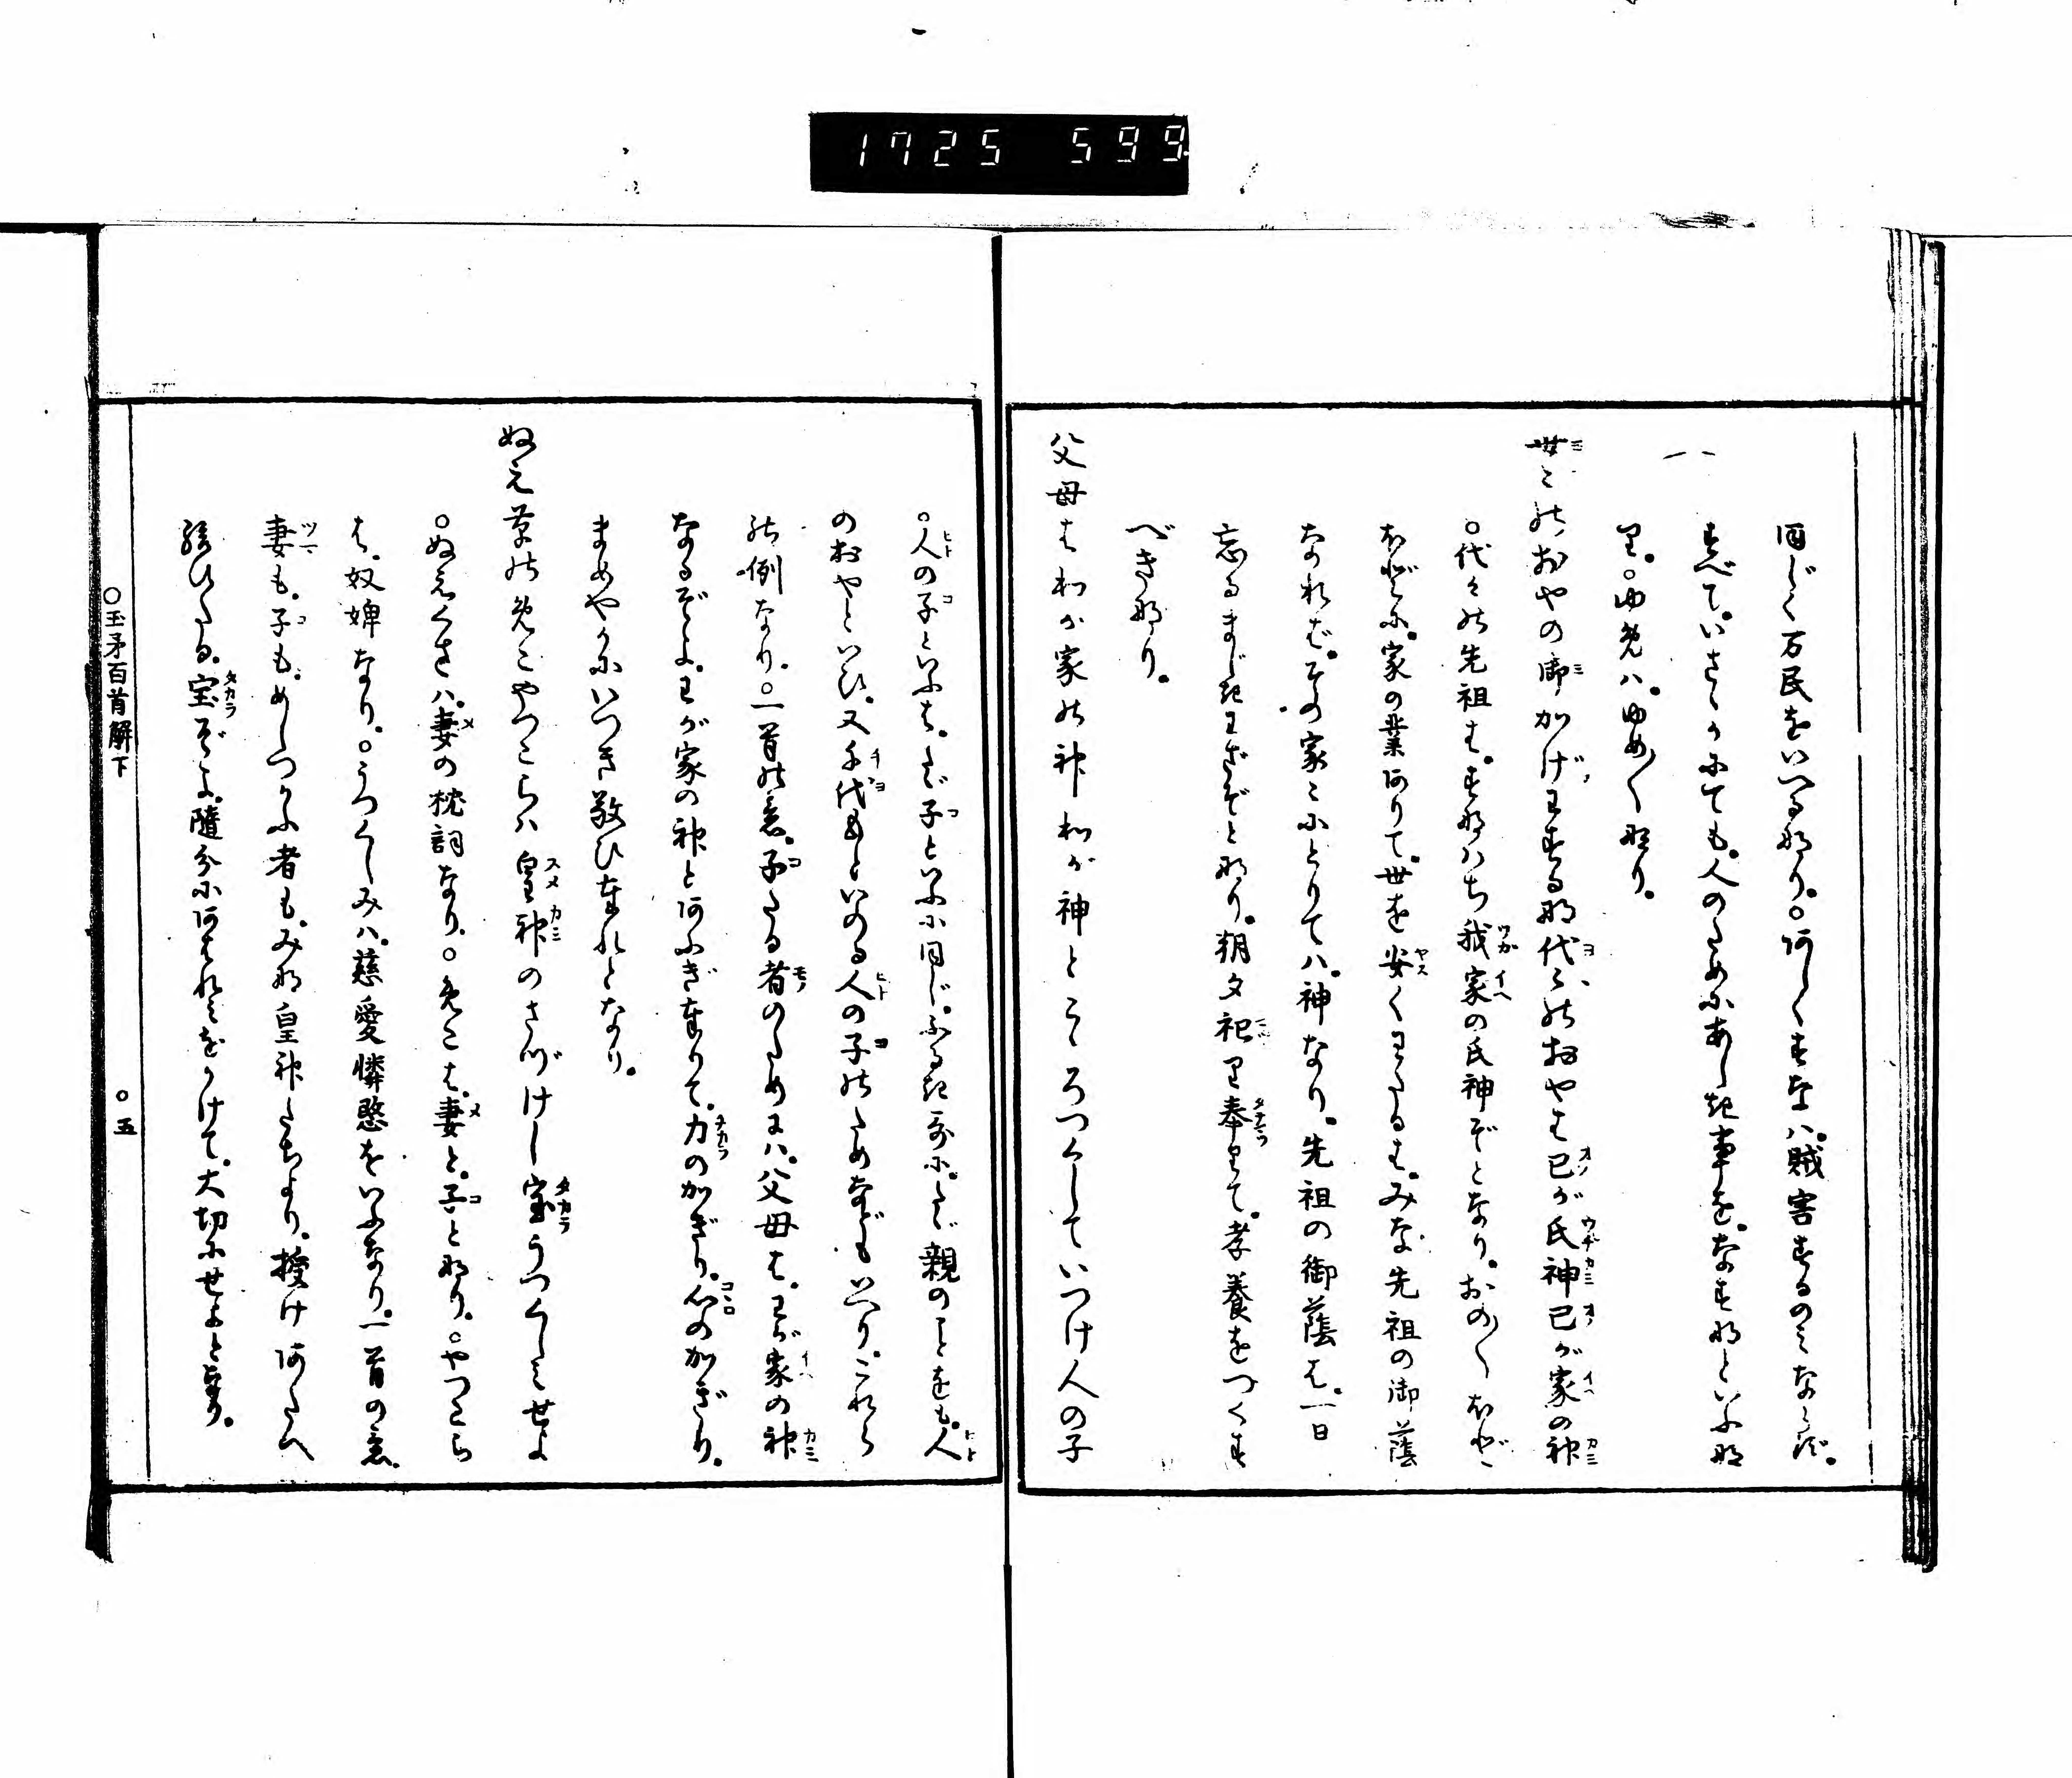 1725 599
同じく万民をいへる那り。○阿しくすな八。賊害するのミならず。
すべて。いさゝかにても。人のためにあしき事を。なす那といふ那
里。○ゆめハ。ゆめ〱那り。
世ミの於やの御かげわするな代々のおやは己が氏神己が家の神
○代々の先祖は。すなハち我家の氏神ぞとなり。おの〱ほどゝ
ほどに。家の業ありて。世を安くわたるは。みな先祖の御蔭
なれば。その家々にとりてハ。神なり。先祖の御蔭は。一日
忘るまじきわざぞとなり。朝夕祀里奉りて。孝養をつくす
べきなり。
父母はわが家の神わが神とこゝろつくしていつけ人の子
○人の子といふは。たゞ子といふに同じ。ふるき歌に。たゞ親のことをも。人
のおやといひ。又千代もといのる人の子のためなどもいへり。これら
の例なり。○一首の意。子たる者のためにハ。父母は。わが家の神
なるぞよ。わが家の神とあふぎ奉りて。力のかぎり。心のかぎり。
まめやかにいつき敬ひ奉れとなり。
ぬえ草のめこやつこらハ皇神のさづけし宝うつくしミせよ
○ぬえくさハ。妻の枕詞なり。○めこは。妻と。子となり。○やつこら
は。奴婢なり。○うつくしみハ。慈愛憐愍をいふなり。一首の意。
妻も。子も。めしつかふ者も。みな皇神たちより。授けあたへ
給ひたる。宝ぞよ。随分にあはれミをかけて。大切にせよとなり。
○玉矛百首解下 ○五